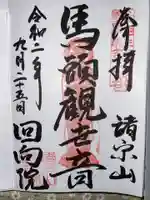 奉拝
諸宗山
馬頭観世音
令和二年
九月二十五日
回向院